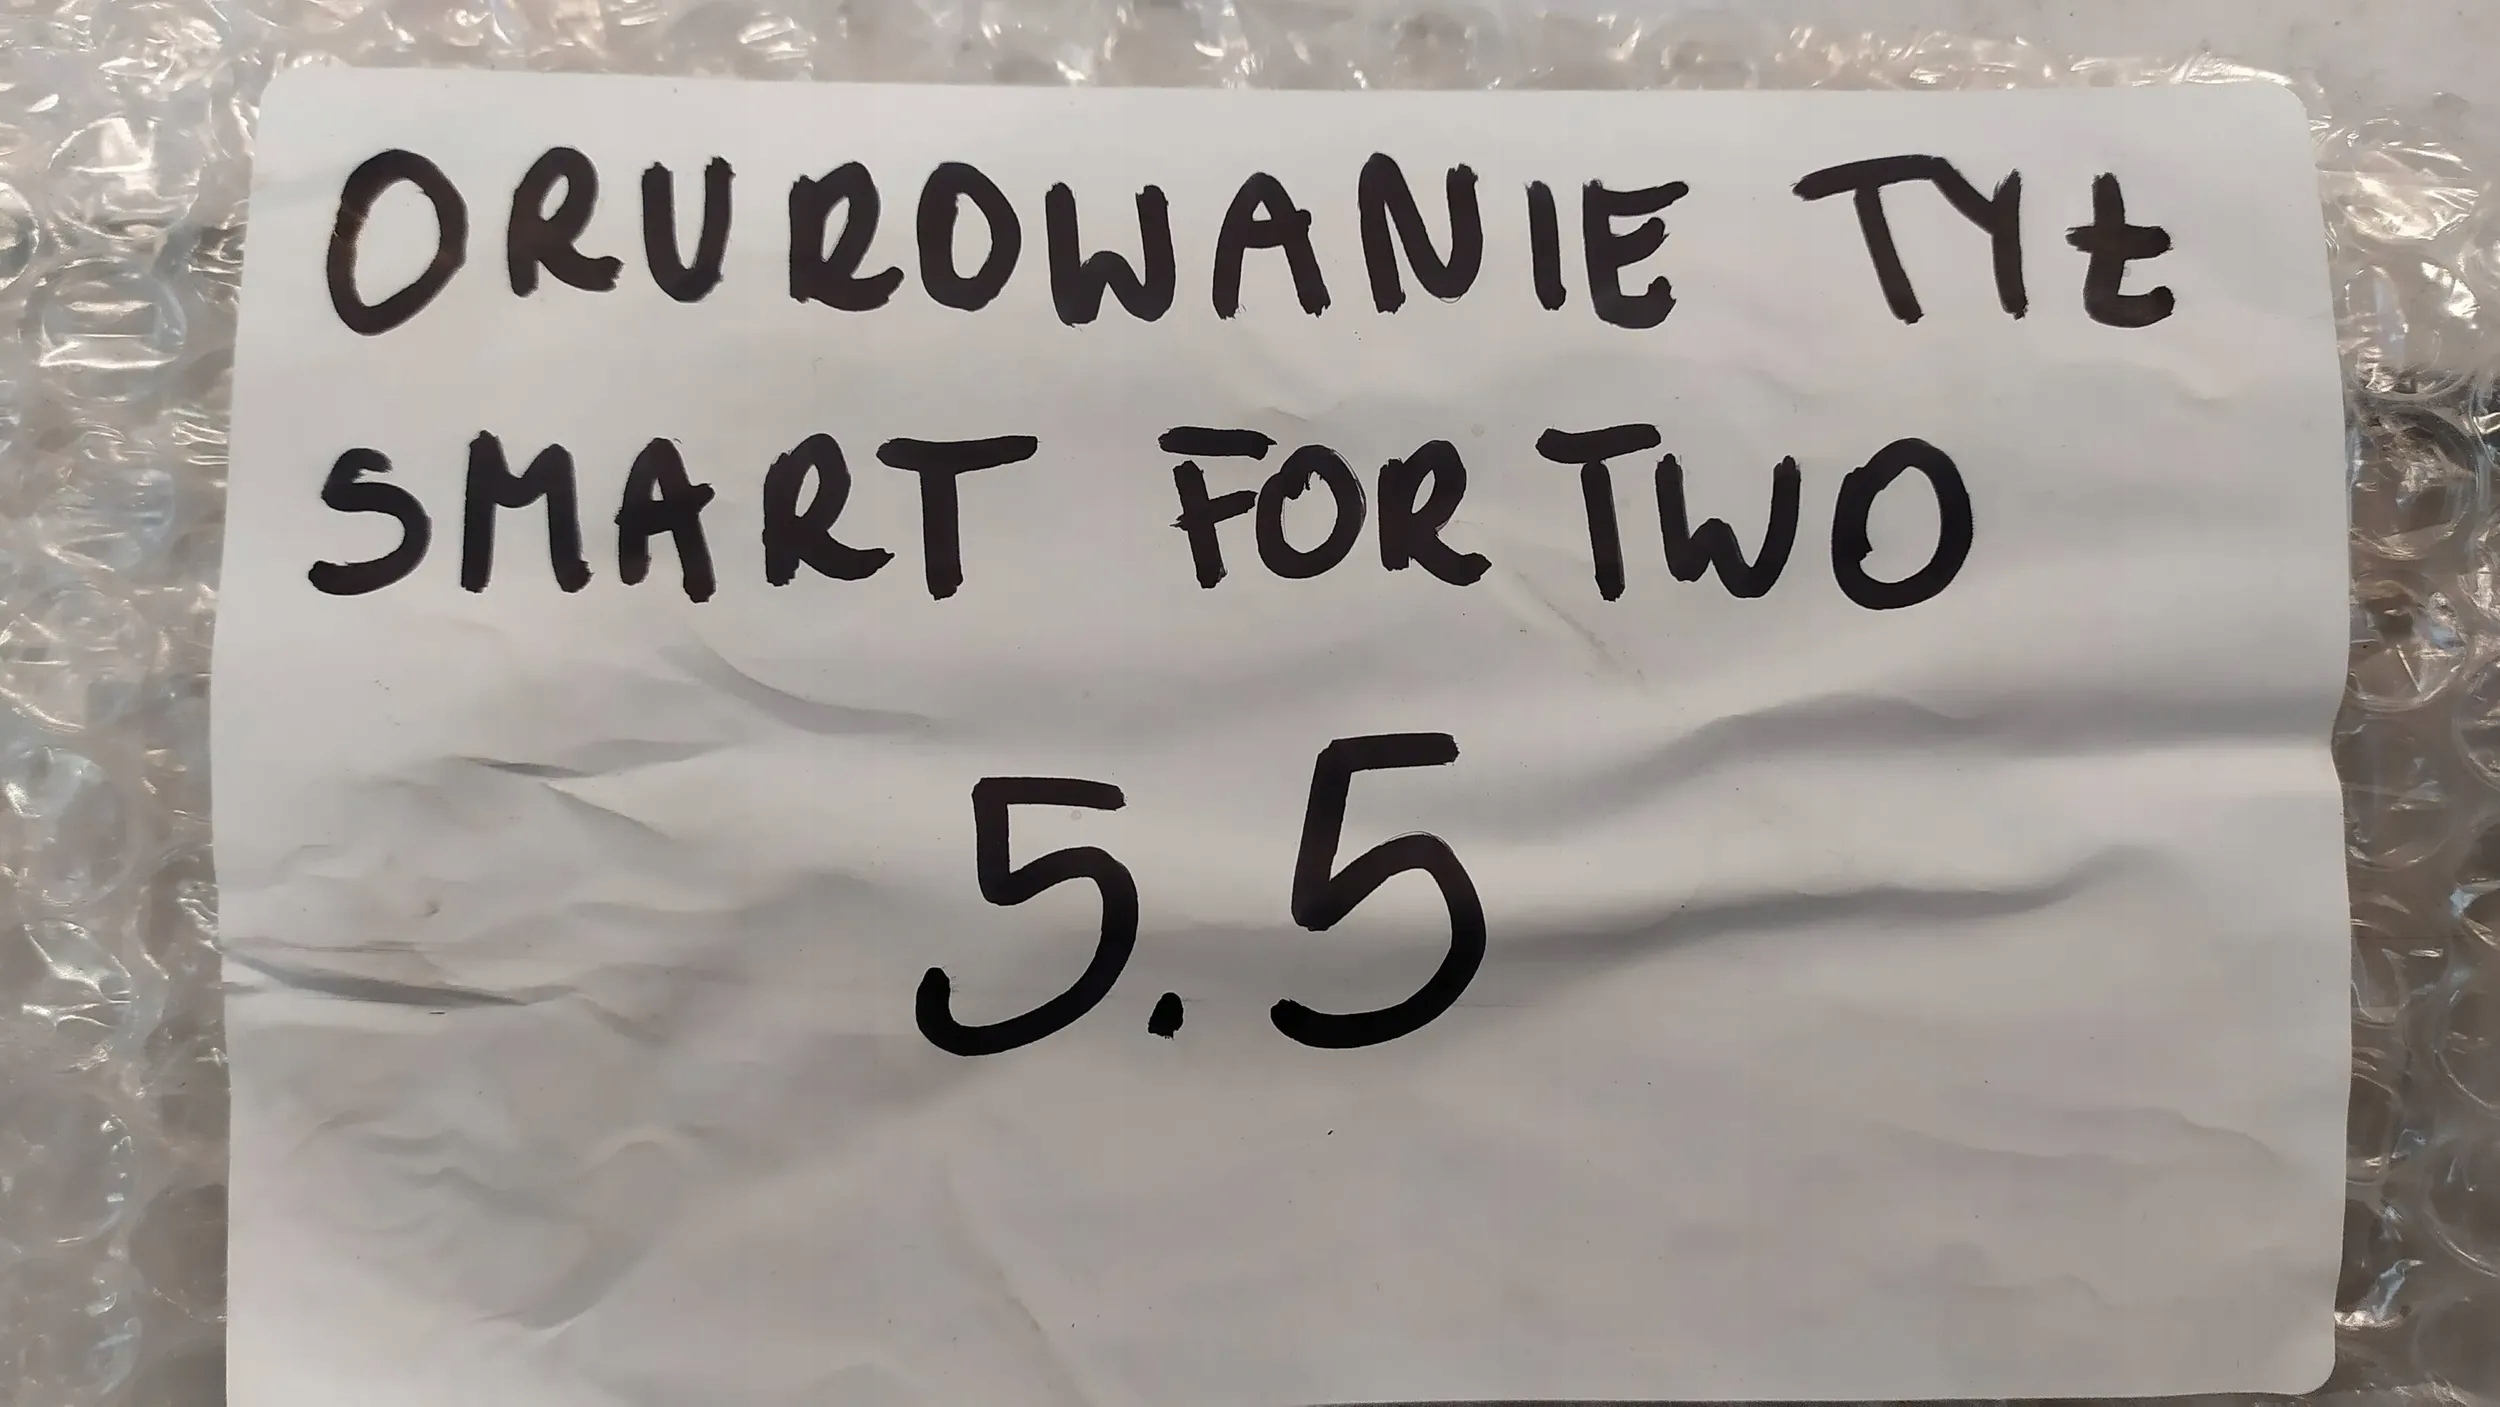 ORUROWANIE TYŁ
SMART FORTWO
5.5